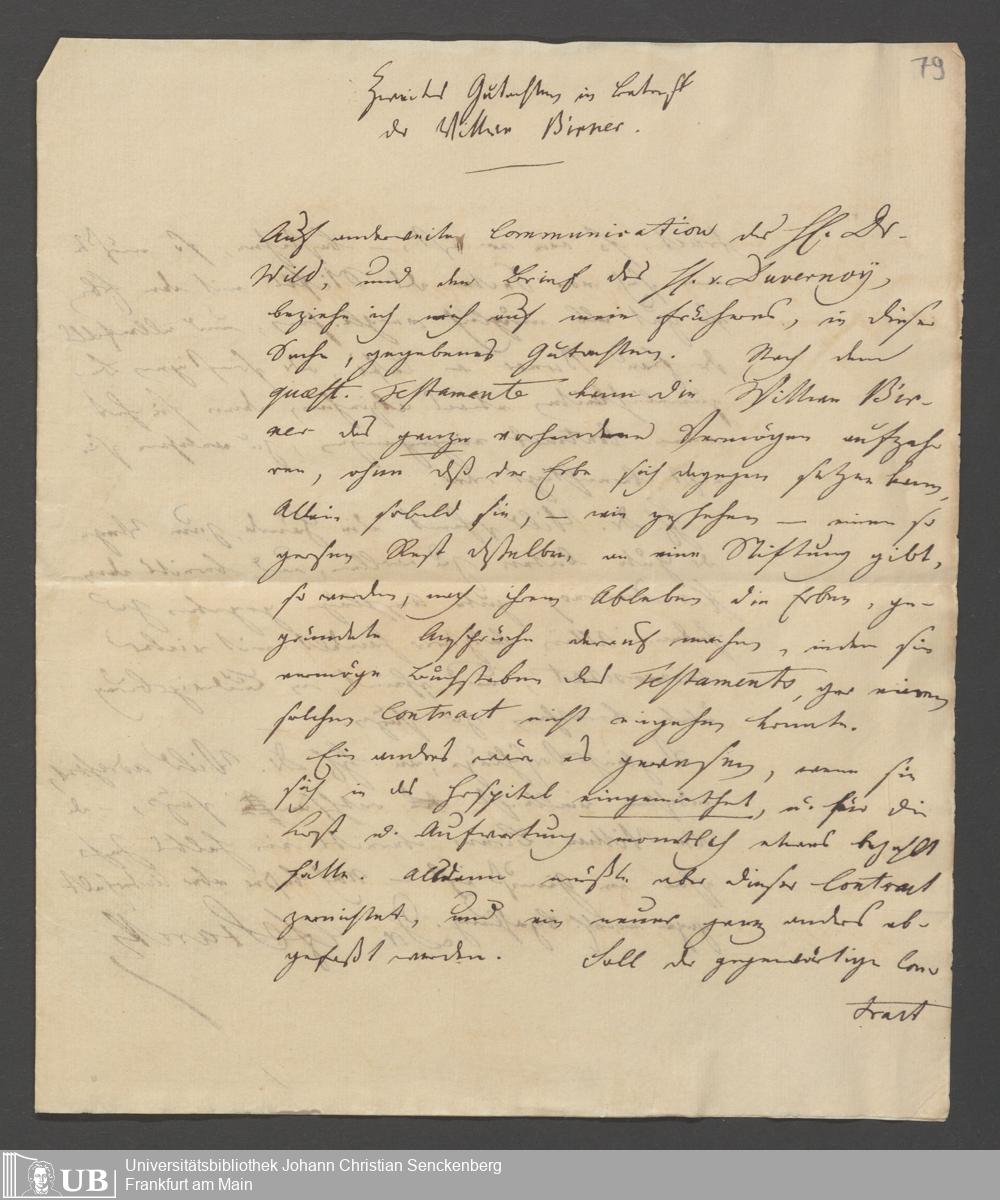 79
Zweites Gutachten in Betreff
der Wittwe Birner.
Auf anderweite Communication des H. Dr.
Wild, und den Brief des H. v. Duvernoÿ,
beziehe ich mich auf mein früheres, in dieser
Sache, gegebenes Gutachten. Nach dem
quæst. Testamente kann die Wittwe Bir-
ner das ganze vorhandene Vermögen aufzeh
ren, ohne daß der Erbe sich dagegen setzen kann,
Allein sobald sie, – wie geschehen – einen so
großen Rest desselben, an eine Stiftung gibt,
so werden, nach ihrem Ableben die Erben, ge-
gründete Ansprüche darauf machen, indem sie
vermöge Buchstaben des Testaments, gar einen
solchen Contract nicht eingehen konnte.
Ein anders wäre es gewesen, wenn sie
sich in das Hospital eingemiethet, u. für die
Kost u. Aufwartung monatlich etwas bezahlt
hätte. Alsdann müßte aber dieser Contract
zernichtet, und ein neuer ganz anders ab-
gefaßt werden. Soll der gegenwärtige Con-
tract
UB
Universitätsbibliothek Johann Christian Senckenberg
Frankfurt am Main